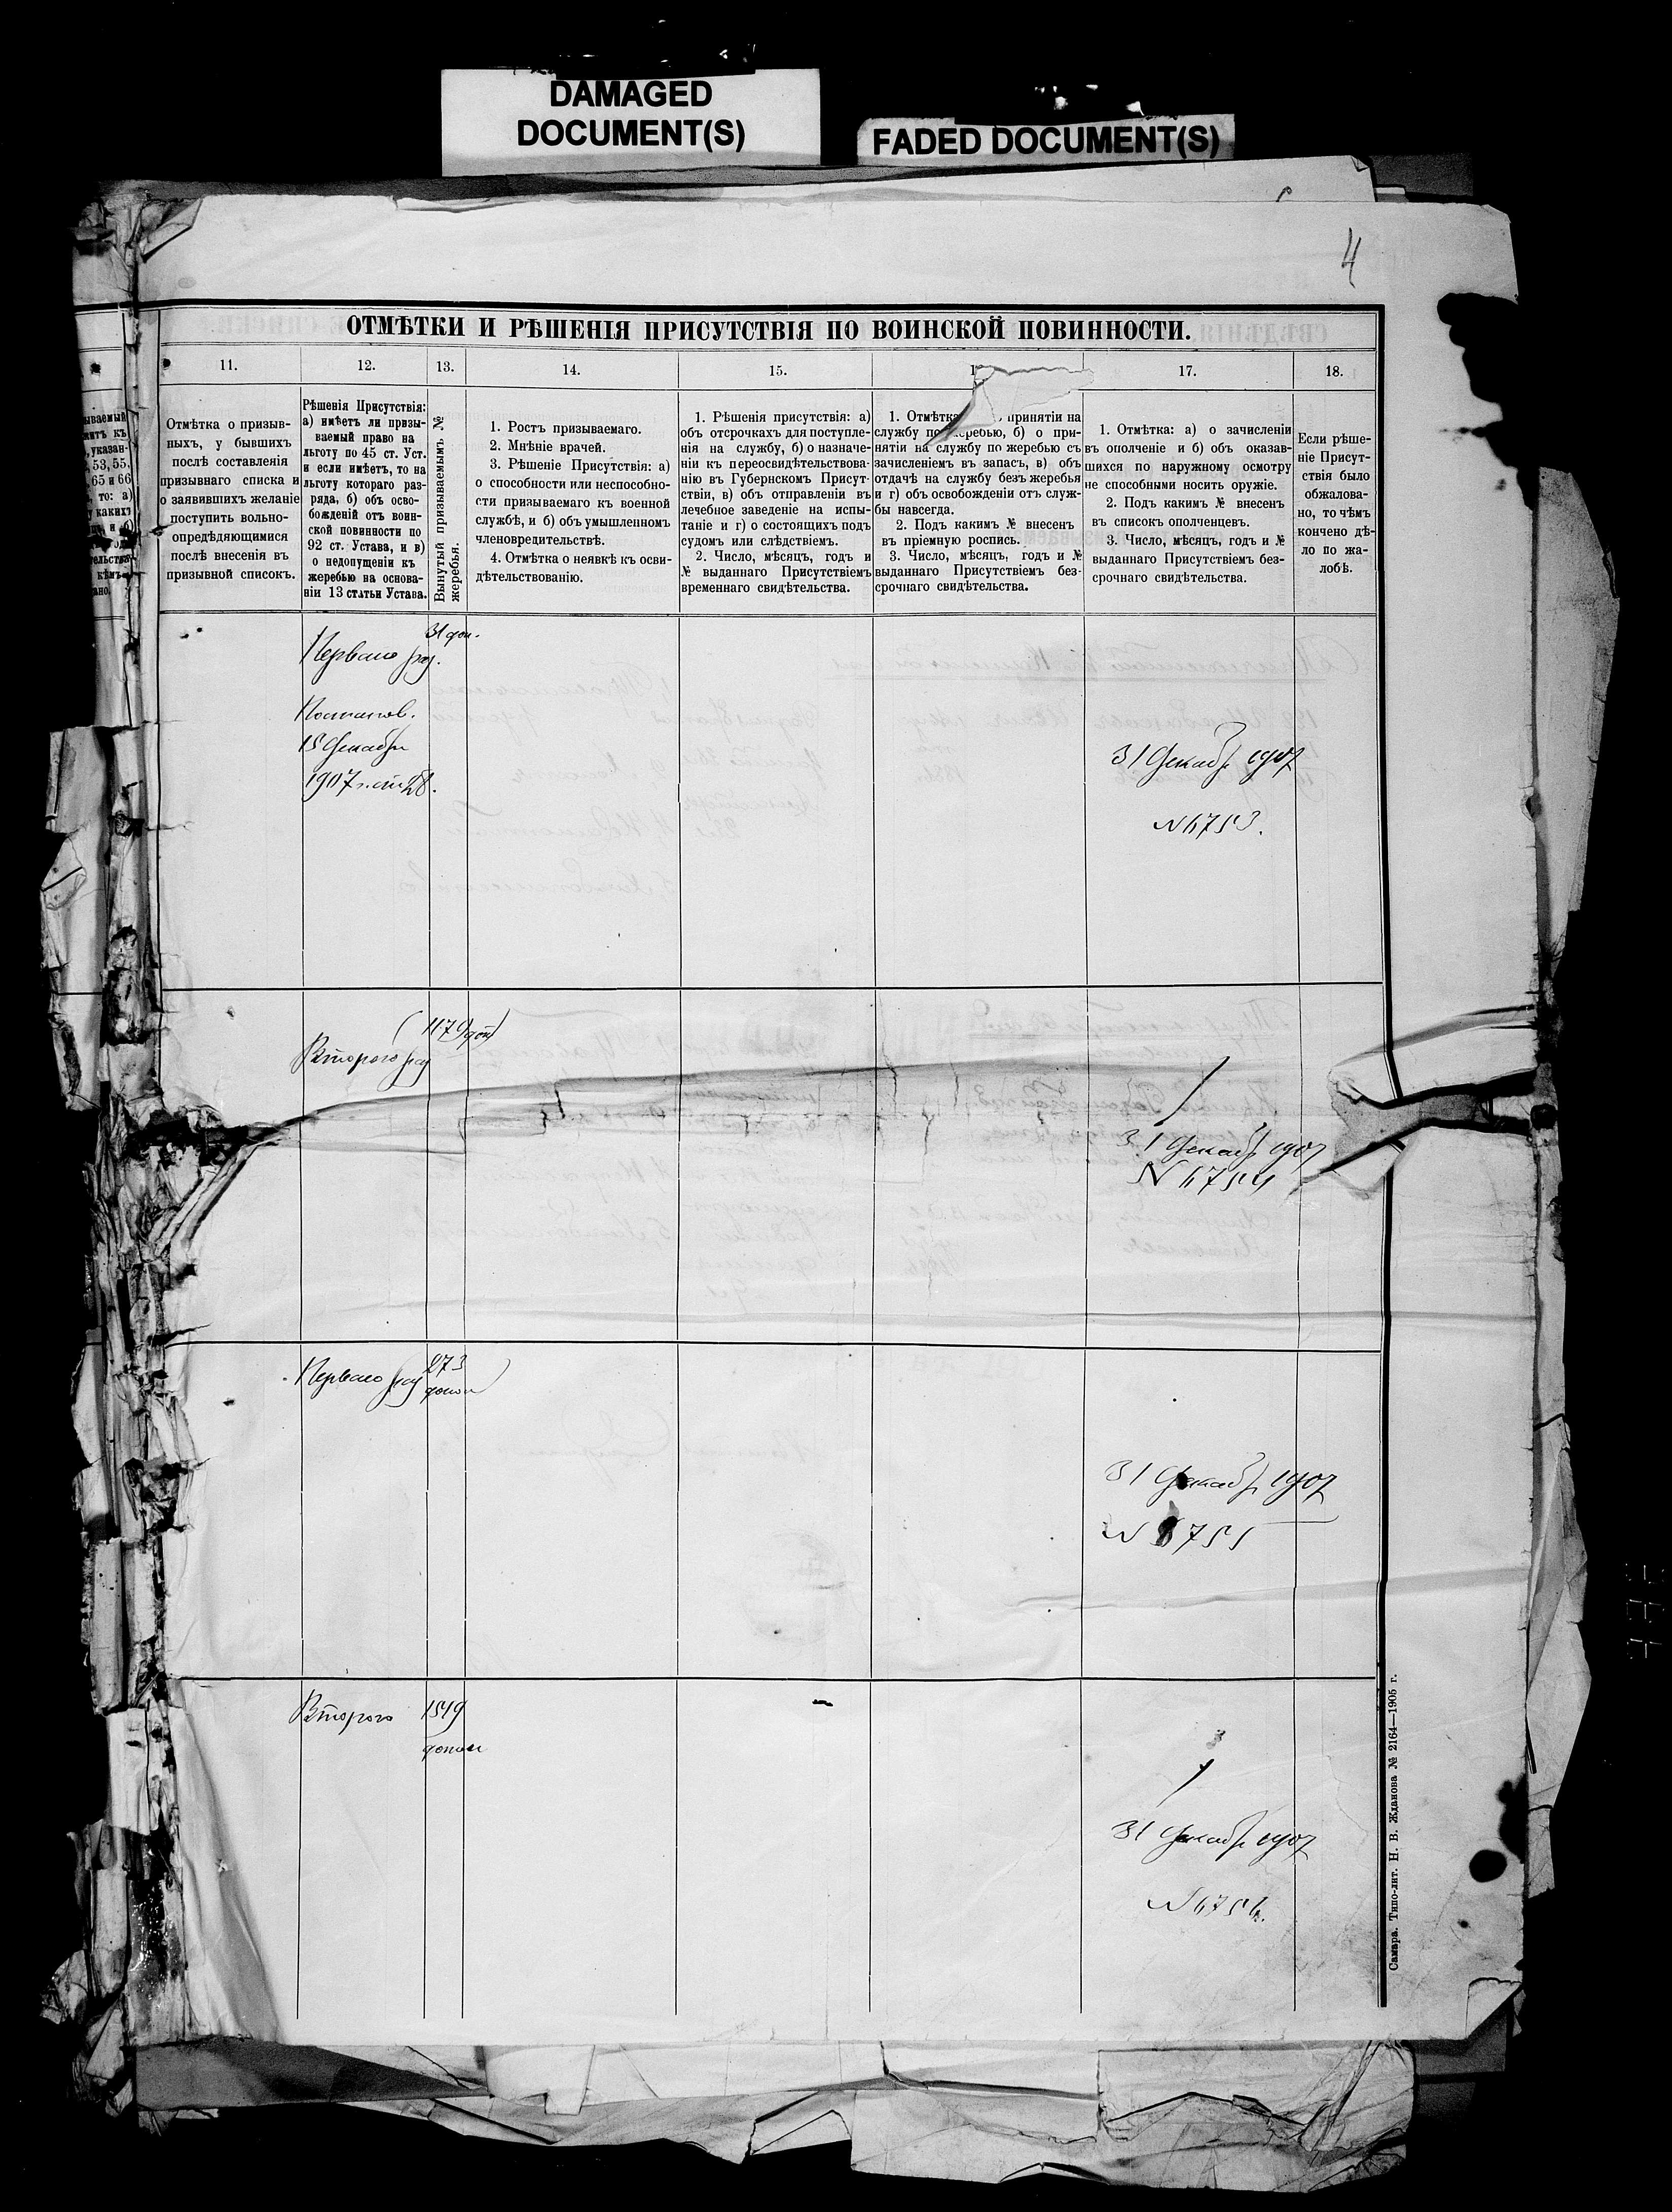 DAMAGED
DOCUMENT(S)
FADED DOCUMENT(S)
4
ОТМѢТКИ И РѢШЕНІЯ ПРИСУТСТВІЯ ПО ВОИНСКОЙ ПОВИННОСТИ.
11.
12.
13.
14.
15.
17.
18.
Отмѣтка о призыв-
ныхъ, у бывшихъ
послѣ составленія
призывнаго списка и
о заявившихъ желаніе
поступить вольно-
опредѣдяющимися
послѣ внесенія въ
призывной списокъ.
Рѣшенія Присутствія:
а) имѣетъ ли призы-
ваемый право на
льготу по 45 ст. Уст.
и если имѣетъ, то на
льготу котораго раз-
ряда, б) объ осво-
божденій отъ воин-
ской повинности по
92 ст. Устава, и в)
о недопущеніи къ
жеребью на основа-
ніи 13 статьи Устава.
Вынутый призываемымъ №
жеребья.
1. Ростъ призываемаго.
2. Мнѣніе врачей.
3. Рѣшеніе Присутствія: а)
о способности или неспособно-
сти призываемаго къ военной
службѣ, и б) объ умышленномъ
членовредительствѣ.
4. Отмѣтка о неявкѣ къ осви-
дѣтельствованію.
1. Рѣшенія присутствія: а)
объ отсрочкахъ для поступле-
нія на службу, б) о назначе-
ніи къ переосвидѣтельствова-
нію въ Губернскомъ Присут-
ствіи, в) объ отправленіи въ
лечебное заведеніе на испы-
таніе и г) о состоящихъ подъ
судомъ или слѣдствіемъ.
2. Число, мѣсяцъ, годъ и
№ выданнаго Присутствіемъ
временнаго свидѣтельства.
1. Отмѣтка принятіи на
службу по жеребью, б) о при-
нятіи на службу по жеребью съ
зачисленіемъ въ запасъ, в) объ
отдачѣ на службу безъ жеребья
и г) объ освобожденіи отъ служ-
бы навсегда.
2. Подъ какимъ № внесенъ
въ пріемную роспись.
3. Число, мѣсяцъ, годъ и №
выданнаго Присутствіемъ без-
срочнаго свидѣтельства.
1. Отмѣтка: а) о зачисленіи
въ ополченіе и б) объ оказав-
шихся по наружному осмотру
не способными носить оружіе.
2. Подъ какимъ № внесенъ
въ списокъ ополченцевъ.
3. Число, мѣсяцъ, годъ и №
выданнаго Присутствіемъ без-
срочнаго свидѣтельства.
Если рѣше-
ніе Присут-
ствія было
обжалова-
но, то чѣмъ
кончено дѣ-
ло по жа-
лобѣ.
31 доп.
Перваго раз.
Постанов.
15 Декабря
1907 г.
31 Декабр 1907
№ 6753.
1179 доп
Второго раз
31 Декабр 1907
№ 6754
Перваго раз 273
допол
31 Декабр 1907
№ 6755
Второго 1549
допол
31 Декабр 1907
№ 6756.
Самара. Типо-лит. Н. В. Жданова № 2164—1905 г.